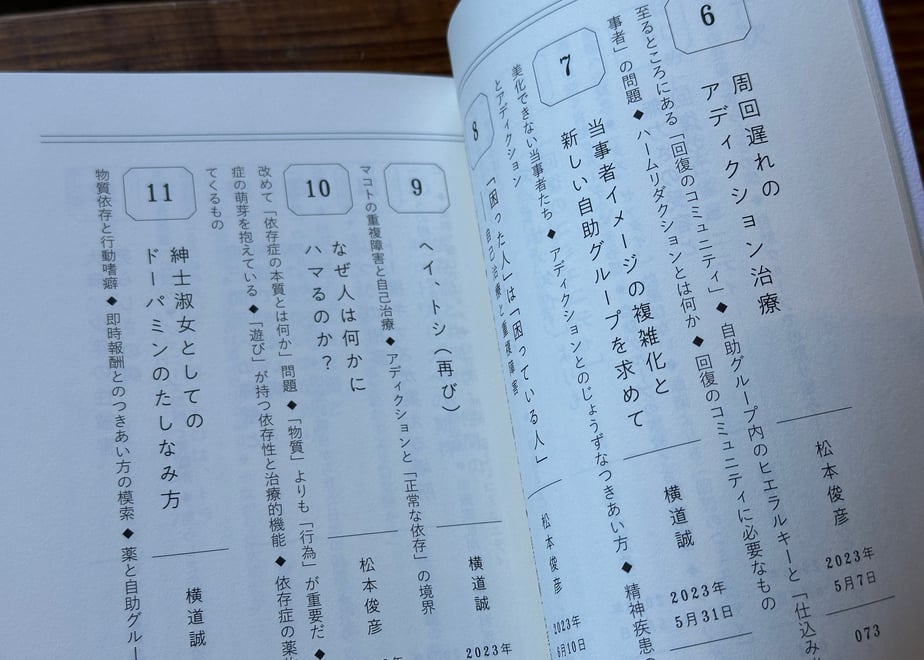 6
周回遅れの
アディクション治療
松本俊彦
2023年
5月7日
073
至るところにある「回復のコミュニティ」◆自助グループ内のヒエラルキーと「仕込み
事者」の問題◆ハームリダクションとは何か◆回復のコミュニティに必要なもの
7
当事者イメージの複雑化と
新しい自助グループを求めて
横道誠
2023年
5月31日
美化できない当事者たち◆アディクションとのじょうずなつきあい方◆精神疾患の
とアディクション
8
「困った人」は「困っている人」
――自己治療と重複障害
松本俊彦
2023年
月10日
9
ヘイ、トシ(再び)
横道誠
2023年
マコトの重複障害と自己治療◆アディクションと「正常な依存」の境界
10
なぜ人は何かに
ハマるのか?
松本俊彦
改めて「依存症の本質とは何か」問題◆「物質」よりも「行為」が重要だ◆
症の萌芽を抱えている◆「遊び」が持つ依存性と治療的機能◆依存症の薬
てくるもの
11
紳士淑女としての
ドーパミンのたしなみ方
横道誠
物質依存と行動嗜癖◆即時報酬とのつきあい方の模索◆薬と自助グルー